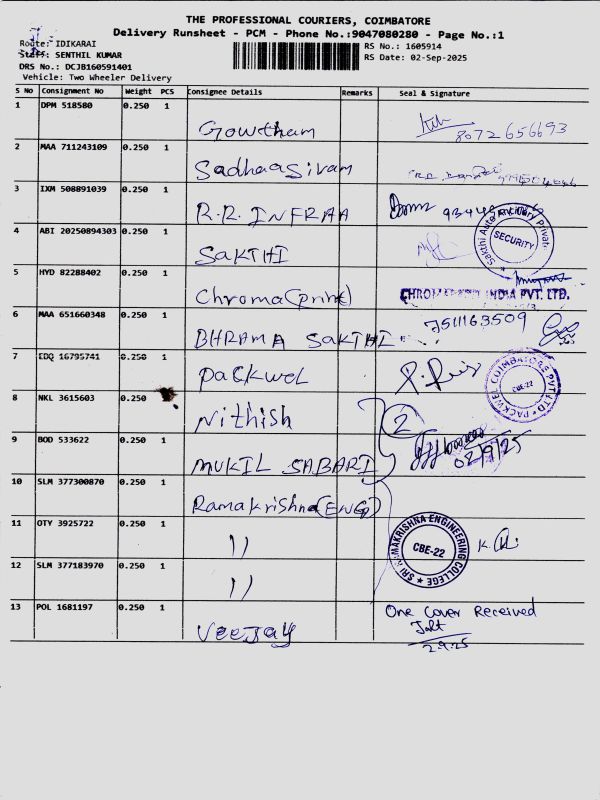 THE PROFESSIONAL COURIERS, COIMBATORE
Delivery Runsheet - PCM - Phone No.:9047080280 - Page No.:1
Route: IDIKARAI
Staff: SENTHIL KUMAR
DRS No.: DCJB160591401
Vehicle: Two Wheeler Delivery
RS No.: 1605914
RS Date: 02-Sep-2025
S No Consignment No Weight PCS Consignee Details Remarks Seal & Signature
1 DPM 518580 0.250 1 Gowtham 8072656693
2 MAA 711243109 0.250 1 Sadhaasivam
3 IXM 508891039 0.250 1 R.R. INFRAA
4 ABI 20250894303 0.250 1 SAKTHI
Sakthi Auto Ancillary Private
SECURITY
5 HYD 82288402 0.250 1 Chroma(print) INDIA PVT. LTD.
6 MAA 651660348 0.250 1 BHRAMA SAKTHI 7511163509
7 EDQ 16795741 0.250 1 Packwel
PACKWEL COIMBATORE PVT LTD
CBE-22
8 NKL 3615603 0.250 Nithish 2
9 BOD 533622 0.250 1 MUKIL SABARI 02/9/25
10 SLM 377300870 0.250 1 Ramakrishna(ENG)
11 OTY 3925722 0.250 1 ))
SRI RAMAKRISHNA ENGINEERING COLLEGE
CBE-22
12 SLM 377183970 0.250 1 ))
13 POL 1681197 0.250 1 Veejay
One Cover Received
2.9.25